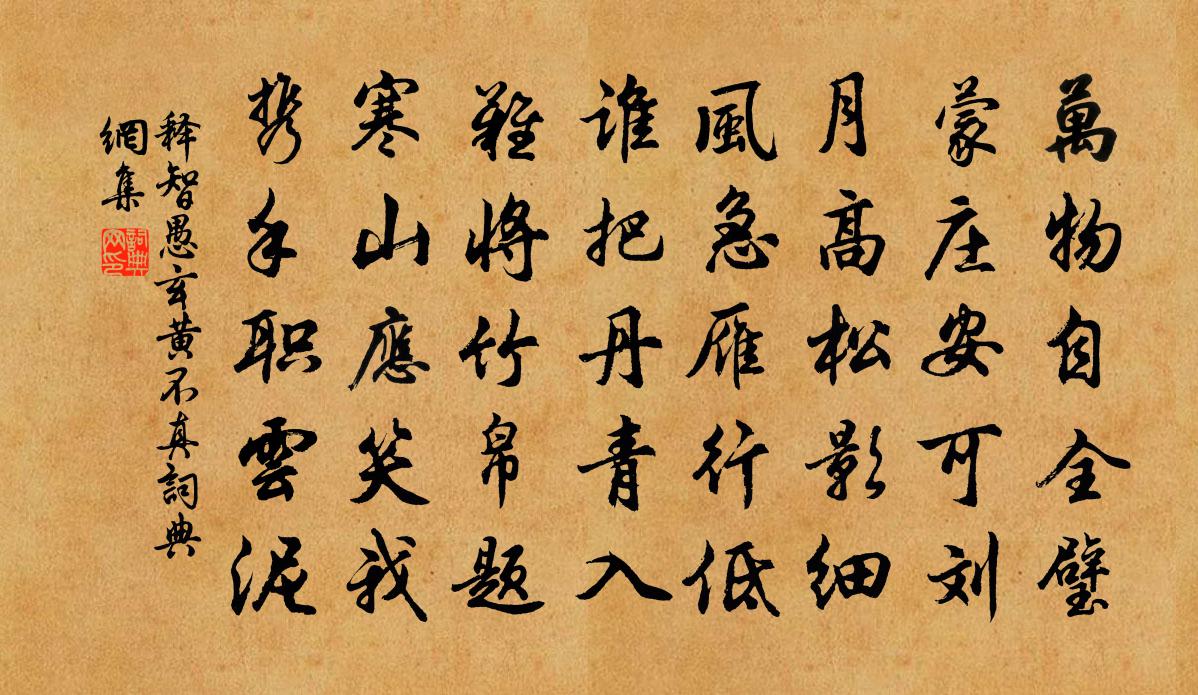 萬物自全璧
蒙庄安可刘
月高松影细
風急雁行低
谁把丹青入
難将竹帛题
寒山應笑我
携手职雲泥
释智愚玄黄不真詞典
網集
詞典網印